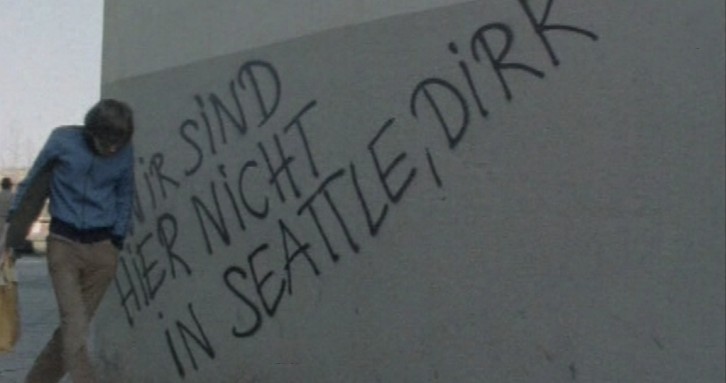 WiR SiND
HiER NiCHT
iN SEATTLE, DiRK